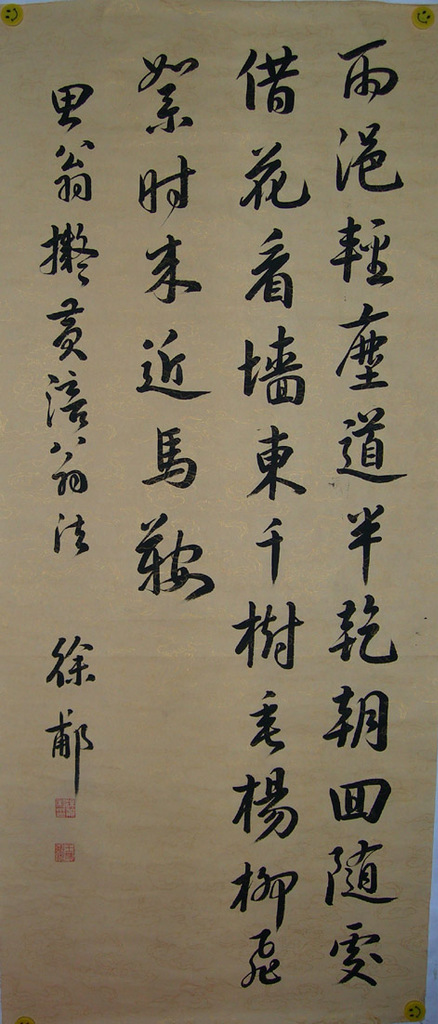 雨浥輕塵道半乾朝回随處
借花看墙東千樹垂楊柳飛
絮时来近馬鞍
思翁擬黄涪翁法
徐郙